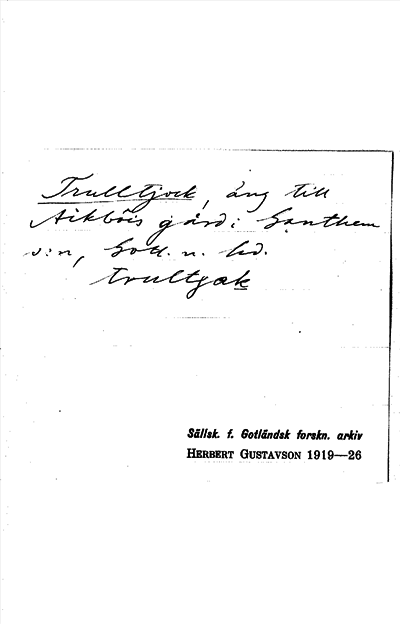 Trulltjock, äng till
Aikbôis gård i Ganthem
s:n, Gotl. n. hd.
trultjak
Sällsk. f. Gotländsk forskn. arkiv
HERBERT GUSTAVSON 1919—26